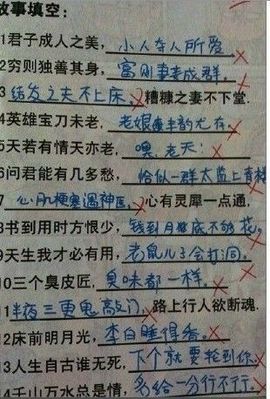 故事填空：
1君子成人之美，小人夺人所爱
2穷则独善其身，富则妻妾成群。
3结发之夫不上床，糟糠之妻不下堂.
4英雄宝刀未老，老娘丰韵尤存
5天若有情天亦老，噢，老天!
6问君能有几多愁，恰似一群太监上青楼
7心肌梗塞遇神医，心有灵犀一点通，
8书到用时方恨少，钱到月底不够花，
9天生我才必有用，老鼠儿子会打洞。
10三个臭皮匠，臭味都一样。
11半夜三更鬼敲门，路上行人欲断魂.
12床前明月光，李白睡得香。
13人生自古谁无死，下个就要轮到你
14千山万水总是情，多给一分行不行。